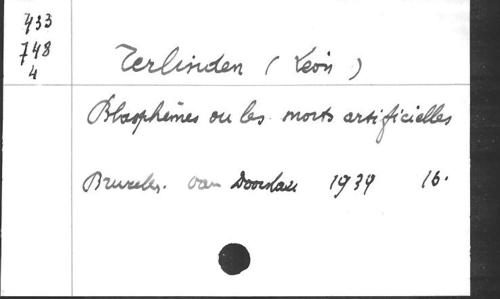 433
748
4
Terlinden (Léon)
Blasphèmes ou les morts artificielles
Bruxelles. van Doorslaer 1939 16.